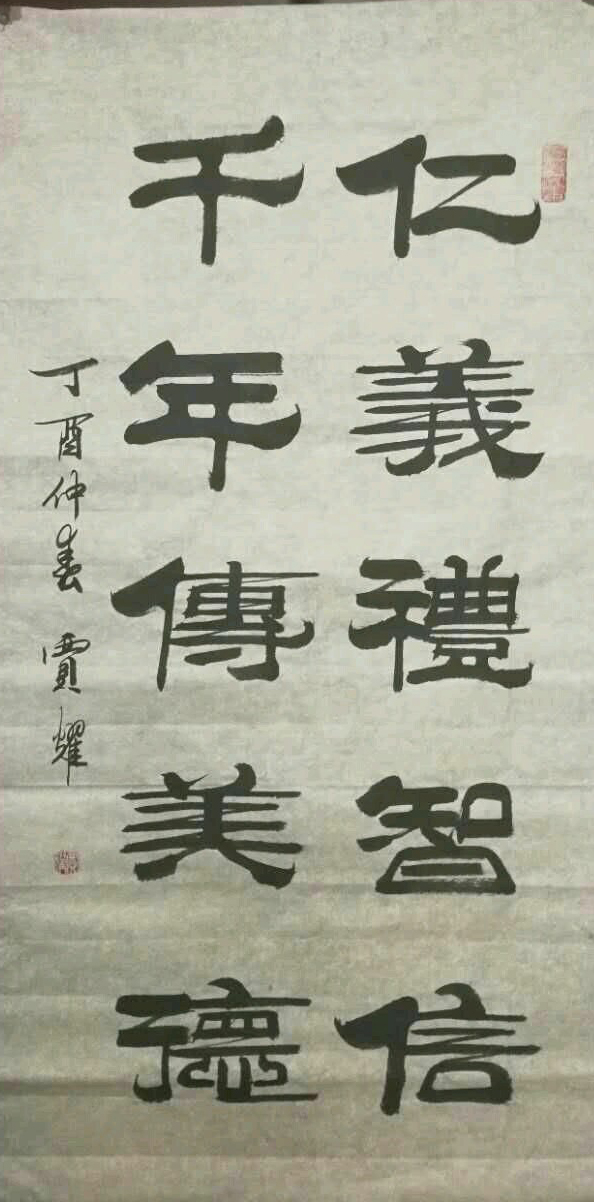 仁義禮智信
千年傳美德
丁酉仲春 賈耀